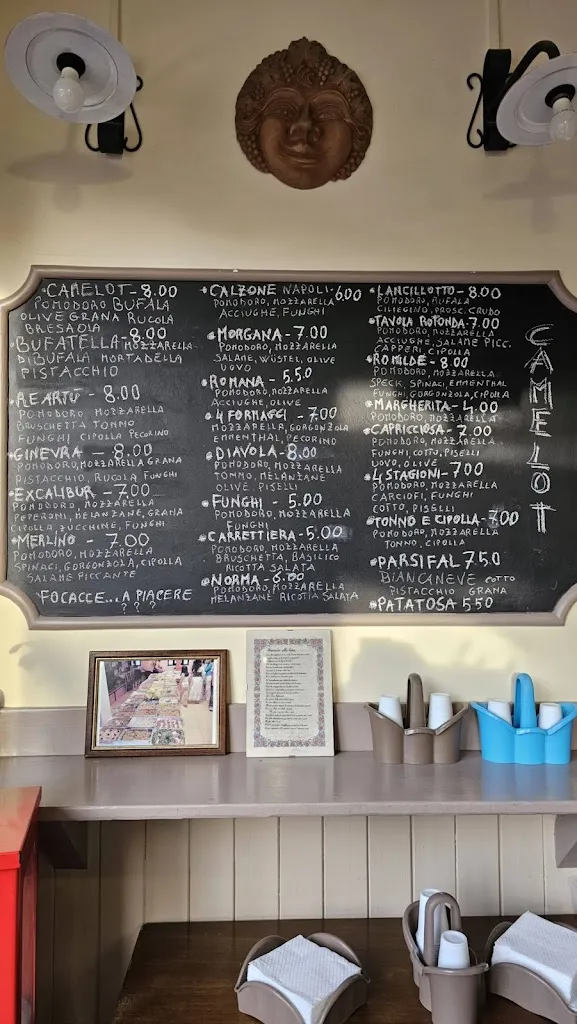 CAMELOT - 8.00
POMODORO BUFALA
OLIVE GRANA RUCOLA
BRESAOLA
BUFATELLA - 8.00
MOZZARELLA
DIBUFALA MORTADELLA
PISTACCHIO
RE ARTÙ - 8.00
POMODORO MOZZARELLA
BRUSCHETTA TONNO
FUNGHI CIPOLLA PECORINO
GINEVRA - 8.00
POMODORO, MOZZARELLA GRANA
PISTACCHIO, RUCOLA FUNGHI
EXCALIBUR - 7.00
POMODORO, MOZZARELLA
PEPERONI, MELANZANE, GRANA
CIPOLLA, ZUCCHINE, FUNGHI
MERLINO - 7.00
POMODORO, MOZZARELLA
SPINACI, GORGONZOLA, CIPOLLA
SALAME PICCANTE
FOCACCE... A PIACERE
? ? ?
CALZONE NAPOLI - 6.00
POMODORO, MOZZARELLA
ACCIUGHE, FUNGHI
MORGANA - 7.00
POMODORO, MOZZARELLA
SALAME, WÜSTEL, OLIVE
UOVO
ROMANA - 5.50
POMODORO, MOZZARELLA
ACCIUGHE, OLIVE
4 FORMAGGI - 7.00
MOZZARELLA, GORGONZOLA
EMMENTHAL, PECORINO
DIAVOLA - 8.00
POMODORO, MOZZARELLA
TONNO, MELANZANE
OLIVE PISELLI
FUNGHI - 5.00
POMODORO, MOZZARELLA
FUNGHI
CARRETTIERA - 5.00
POMODORO, MOZZARELLA
BRUSCHETTA, BASILICO
RICOTTA SALATA
NORMA - 6.00
POMODORO, MOZZARELLA
MELANZANE RICOTTA SALATA
LANCILLOTTO - 8.00
POMODORO, BUFALA
CILIEGINO, PROSC. CRUDO
TAVOLA ROTONDA - 7.00
POMODORO, MOZZARELLA
ACCIUGHE, SALAME PICC.
CAPPERI, CIPOLLA
ROMILDE - 8.00
POMODORO, MOZZARELLA
SPECK, SPINACI, EMMENTHAL
FUNGHI, GORGONZOLA, CIPOLLA
MARGHERITA - 4.00
POMODORO MOZZARELLA
CAPRICCIOSA - 7.00
POMODORO, MOZZARELLA
FUNGHI, COTTO, PISELLI
UOVO, OLIVE
4 STAGIONI - 7.00
POMODORO, MOZZARELLA
CARCIOFI, FUNGHI
COTTO, PISELLI
TONNO E CIPOLLA - 7.00
POMODORO, MOZZARELLA
TONNO, CIPOLLA
PARSIFAL 7.50
BIANCANEVE COTTO
PISTACCHIO GRANA
PATATOSA 5.50
CAMELOT